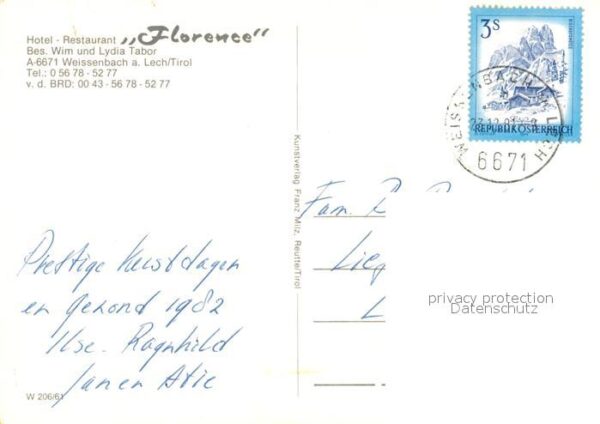 Hotel - Restaurant „Florence“
Bes. Wim und Lydia Tabor
A-6671 Weissenbach a. Lech/Tirol
Tel.: 0 56 78 - 52 77
v. d. BRD: 00 43 - 56 78 - 52 77
3s
REPUBLIK ÖSTERREICH
WEISSENBACH AM LECH
6671
Kunstverlag Franz Milz, Reutte/Tirol
Fam.
privacy protection
Datenschutz
Prettige Kerstdagen
en gezond 1982
Ilse. Ragnhild
Jan en Atie
W 206/61